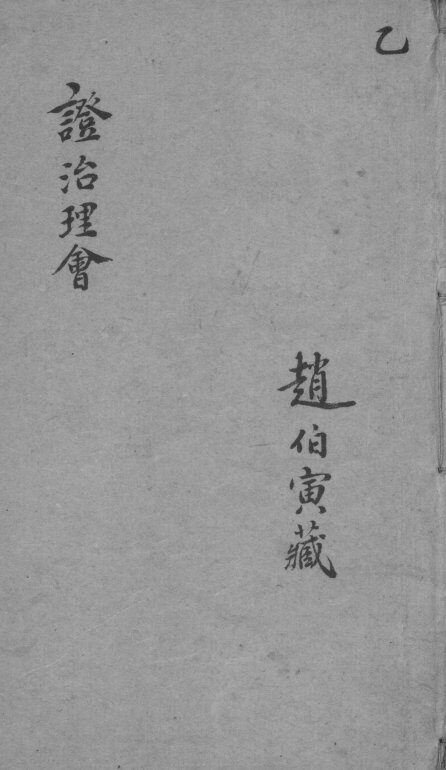 乙
趙伯寅藏
證治理會